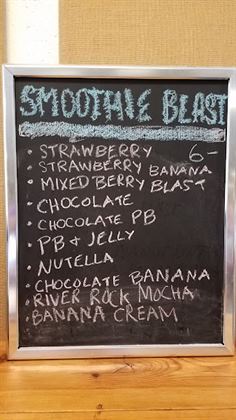 SMOOTHIE BLAST
• STRAWBERRY 6-
• STRAWBERRY BANANA
• MIXED BERRY BLAST
• CHOCOLATE
• CHOCOLATE PB
• PB & JELLY
• NUTELLA
• CHOCOLATE BANANA
• RIVER ROCK MOCHA
• BANANA CREAM